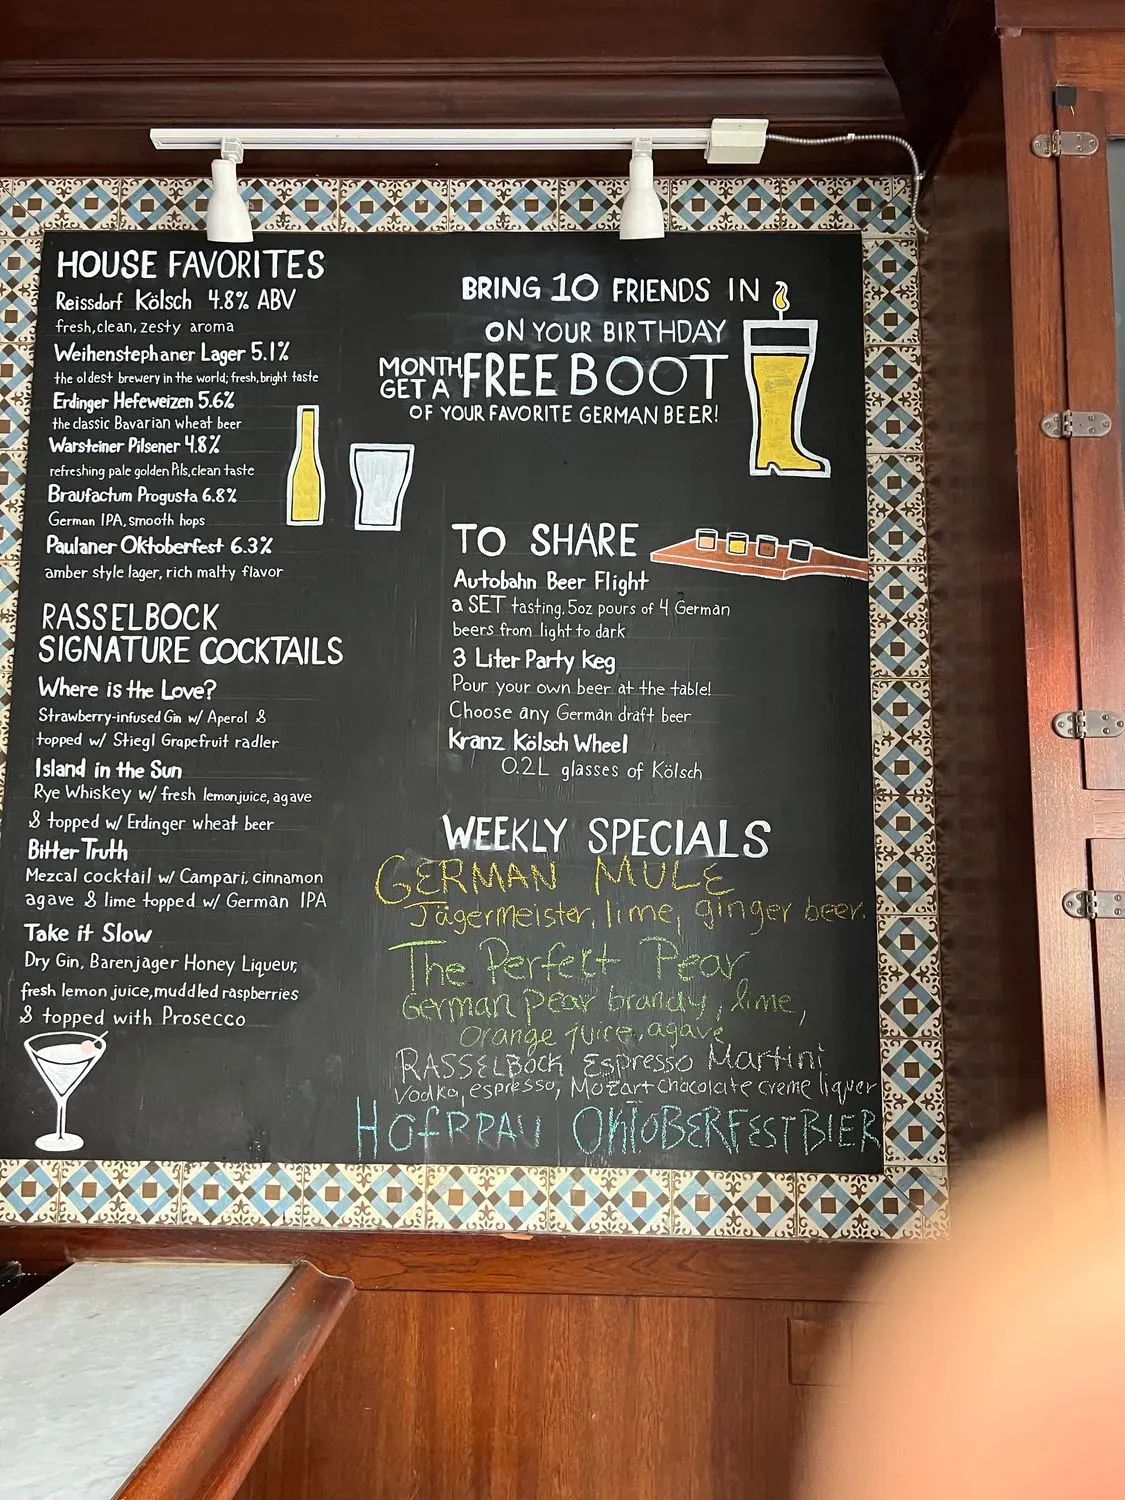 HOUSE FAVORITES
Reissdorf Kölsch 4.8% ABV
fresh, clean, zesty aroma
Weihenstephaner Lager 5.1%
the oldest brewery in the world; fresh, bright taste
Erdinger Hefeweizen 5.6%
the classic Bavarian wheat beer
Warsteiner Pilsener 4.8%
refreshing pale golden Pils, clean taste
Braufactum Progusta 6.8%
German IPA, smooth hops
Paulaner Oktoberfest 6.3%
amber style lager, rich malty flavor
RASSELBOCK
SIGNATURE COCKTAILS
Where is the Love?
Strawberry-infused Gin w/ Aperol &
topped w/ Stiegl Grapefruit radler
Island in the Sun
Rye Whiskey w/ fresh lemon juice, agave
& topped w/ Erdinger wheat beer
Bitter Truth
Mezcal cocktail w/ Campari, cinnamon
agave & lime topped w/ German IPA
Take it Slow
Dry Gin, Barenjager Honey Liqueur,
fresh lemon juice, muddled raspberries
& topped with Prosecco
BRING 10 FRIENDS IN
ON YOUR BIRTHDAY
MONTH GET A FREE BOOT
OF YOUR FAVORITE GERMAN BEER!
TO SHARE
Autobahn Beer Flight
a SET tasting, 5oz pours of 4 German
beers from light to dark
3 Liter Party Keg
Pour your own beer at the table!
Choose any German draft beer
Kranz Kölsch Wheel
0.2L glasses of Kölsch
WEEKLY SPECIALS
GERMAN MULE
Jägermeister, lime, ginger beer.
The Perfekt Pear
German pear brandy, lime,
orange juice, agave
RASSELBOCK Espresso Martini
Vodka, espresso, Mozart chocolate creme liquer
HOFBRAU OKTOBERFESTBIER